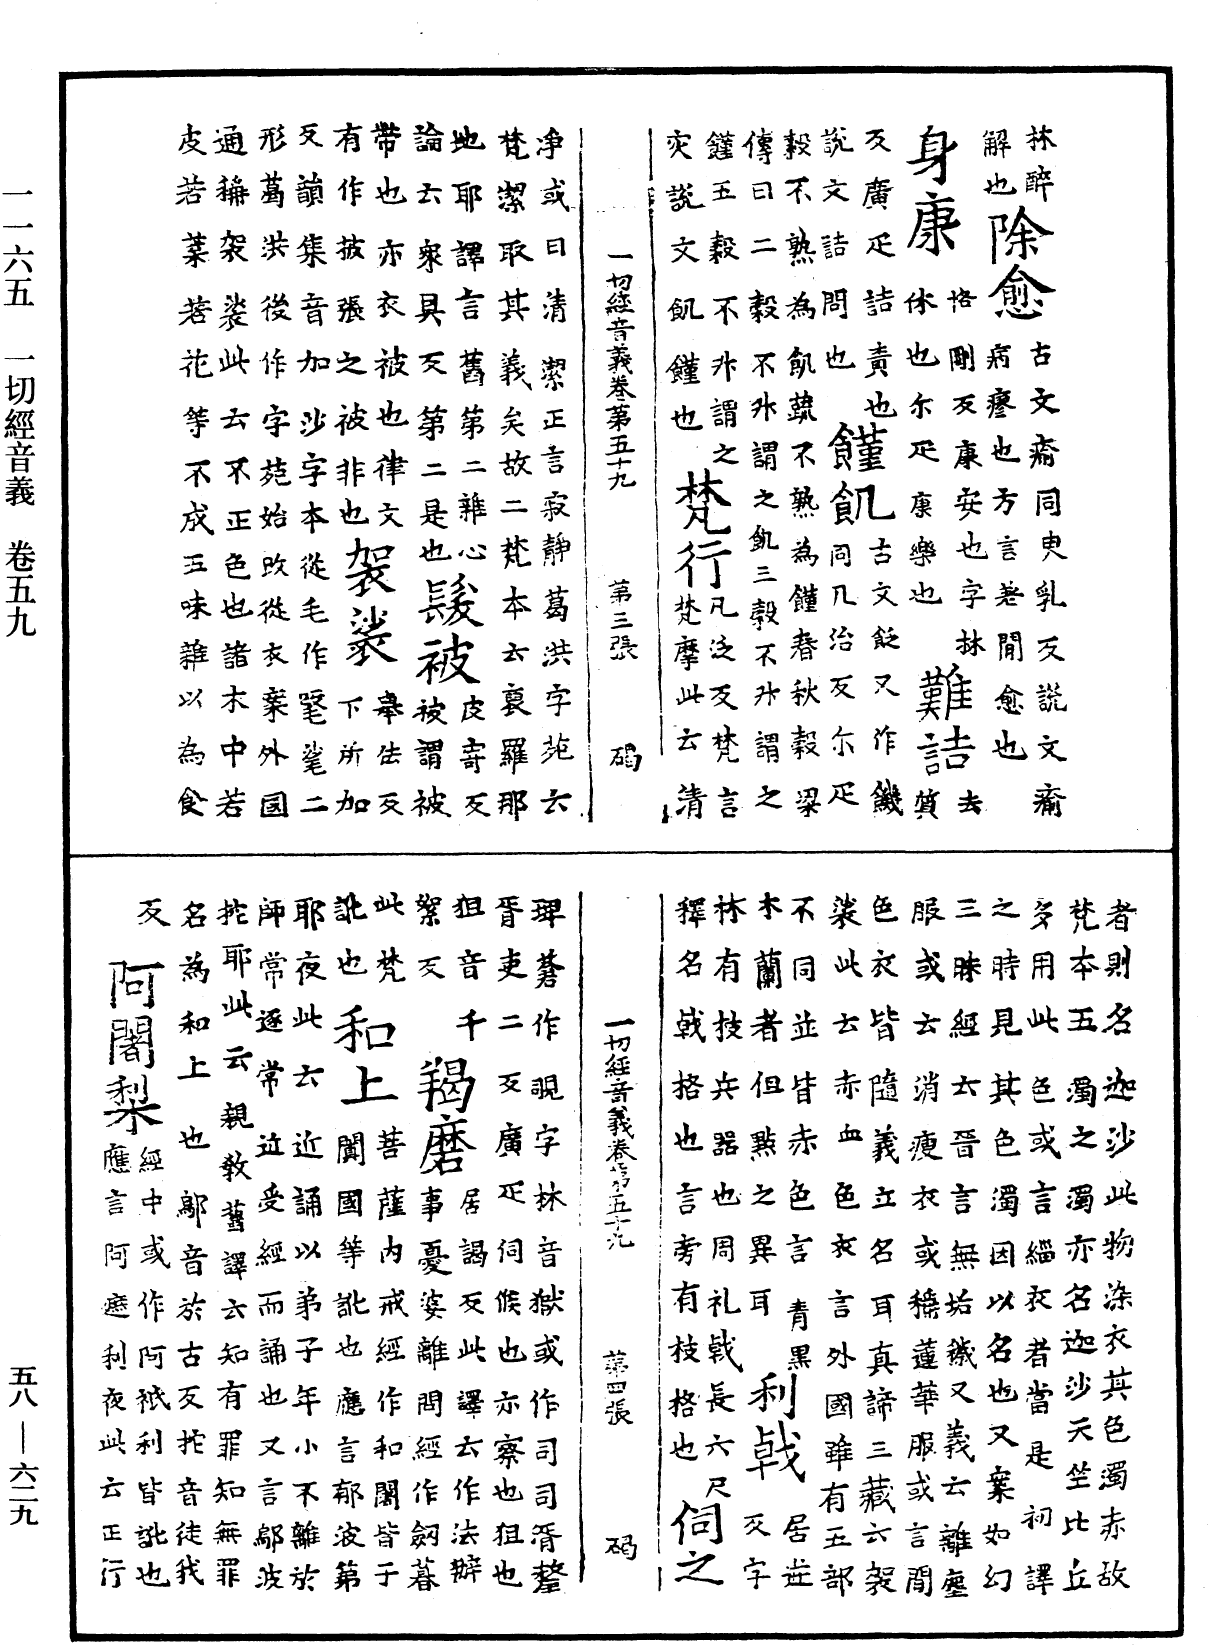 林醉
解也除愈古文瘉同臾乳反說文瘉
病瘳也方言差間愈也
身康恪剛反康安也字林
休也尔疋康樂也難詰去質
反廣疋詰責也
說文詰問也饉飢古文飪又作饑
同几治反尔疋
穀不熟為飢蔬不熟為饉春秋穀梁
傳曰二穀不升謂之飢三穀不升謂之
饉五穀不升謂之
灾說文飢饉也梵行凡泛反梵言
梵摩此云清
一切經音義卷第五十九 第三張 碣
淨或曰清潔正言寂靜葛洪字苑云
梵潔取其義矣故二梵本云裒羅那
地耶譯言舊第二雜心
論云衆具反第二是也髲被皮寄反
被謂被
帶也亦衣被也律文
有作披張之被非也袈裟舉佉反
下所加
反韻集音加沙字本從毛作㲲毟二
形葛洪後作字苑始改從衣案外國
通稱袈裟此云不正色也諸木中若
皮若葉若花等不成五味雜以為食
者則名迦沙此物染衣其色濁赤故
梵本五濁之濁亦名迦沙天竺比丘
多用此色或言緇衣者當是初譯
之時見其色濁因以名也又案如幻
三昧經云晉言無垢穢又義云離塵
服或云消瘦衣或稱蓮華服或言間
色衣皆隨義立名耳真諦三藏云袈
裟此云赤血色衣言外國雖有五部
不同並皆赤色言青黑
木蘭者但點之異耳利戟居逆
反字
林有技兵器也周礼戟長六尺
釋名戟格也言旁有枝格也伺之
埤蒼作覗字林音獄或作司司胥釐
胥吏二反廣疋伺候也亦察也狙也
狙音千
絮反羯磨居謁反此譯云作法辦
事憂婆離問經作劒暮
此梵
訛也和上菩薩內戒經作和闍皆于
闐國等訛也應言郁波第
耶夜此云近誦以弟子年小不離於
師常逐常近受經而誦也又言鄔波
拕耶此云親教舊譯云知有罪知無罪
名為和上也鄔音於古反拕音徒我
反阿闍梨經中或作阿祇利皆訛也
應言阿遮利夜此云正行
一切經音義卷第五十九 第四張 碣
一一六五 一切經音義 卷五九
五八—六二九